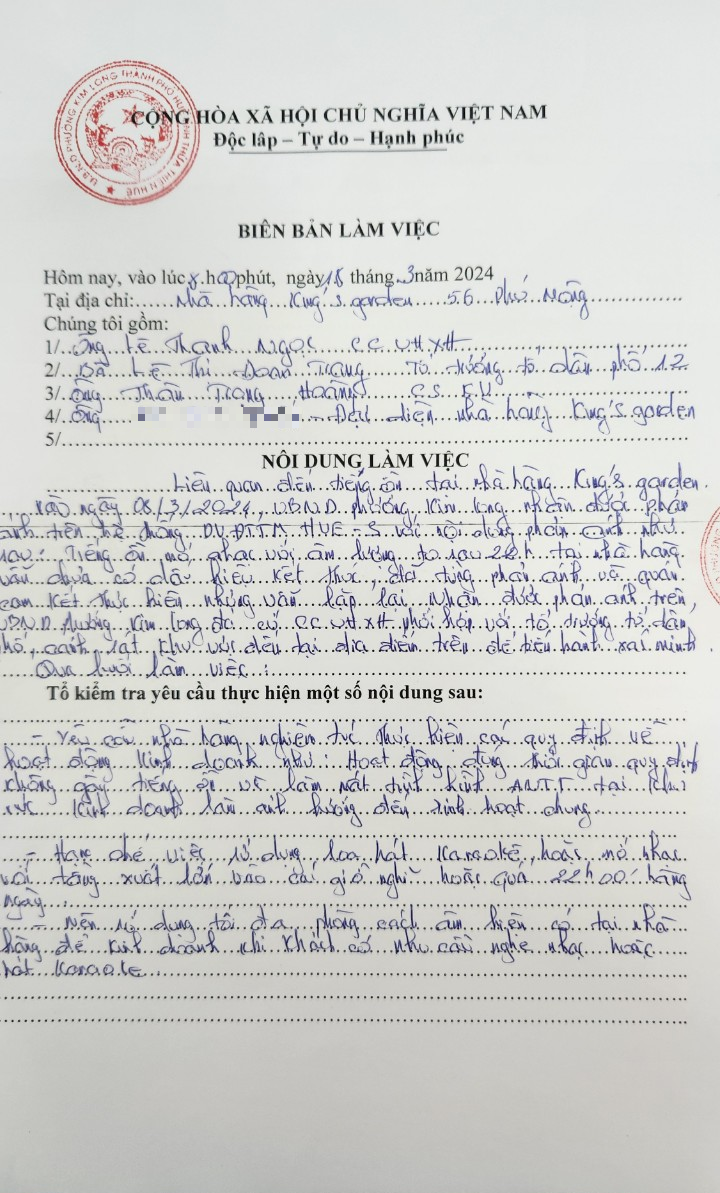 U.B.N.D PHƯỜNG KIM LONG THÀNH PHỐ HUẾ TỈNH THỪA THIÊN HUẾ
CỘNG HÒA XÃ HỘI CHỦ NGHĨA VIỆT NAM
Độc lâp – Tự do – Hạnh phúc
BIÊN BẢN LÀM VIỆC
Hôm nay, vào lúc 8 h 00 phút, ngày 18 tháng 3 năm 2024
Tại địa chỉ: Nhà hàng King's garden 56 Phú Mộng
Chúng tôi gồm:
1/ Ông Lê Thanh Ngọc CC VHXH
2/ Bà Lê Thị Đoan Trang Tổ trưởng tổ dân phố 12
3/ Ông Thân Trọng Hoàng CS KV
4/ Ông Đại diện nhà hàng King's garden
5/
NÔI DUNG LÀM VIỆC
Liên quan đến tiếng ồn tại nhà hàng King's garden.
vào ngày 08/3/2024, UBND phường Kim Long nhận được phản
ánh trên hệ thống DVĐTTM HUE-S với nội dung phản ánh như
sau: Tiếng ồn mở nhạc với âm lượng to sau 22h tại nhà hàng
vẫn chưa có dấu hiệu kết thúc, đã từng phản ánh và quán
cam kết thực hiện nhưng vẫn lặp lại. Nhận được phản ánh trên,
UBND Phường Kim Long đã cử CC VHXH phối hợp với tổ trưởng tổ dân
phố, cảnh sát khu vực đến tại địa điểm trên để tiến hành xác minh.
Qua buổi làm việc:
Tổ kiểm tra yêu cầu thực hiện một số nội dung sau:
- Yêu cầu nhà hàng nghiêm túc thực hiện các quy định về
hoạt động kinh doanh như: Hoạt động đúng thời gian quy định
không gây tiếng ồn và làm mất trật tự ANTT tại khu
vực kinh doanh làm ảnh hưởng đến sinh hoạt chung
- Hạn chế việc sử dụng loa hát Karaoke, hoặc mở nhạc
với tầng xuất lớn vào các giờ nghỉ hoặc quá 22h00' hằng
ngày
- Nên sử dụng tối đa phòng cách âm hiện có tại nhà
hàng để kinh doanh khi khách có nhu cầu nghe nhạc hoặc
hát Karaoke